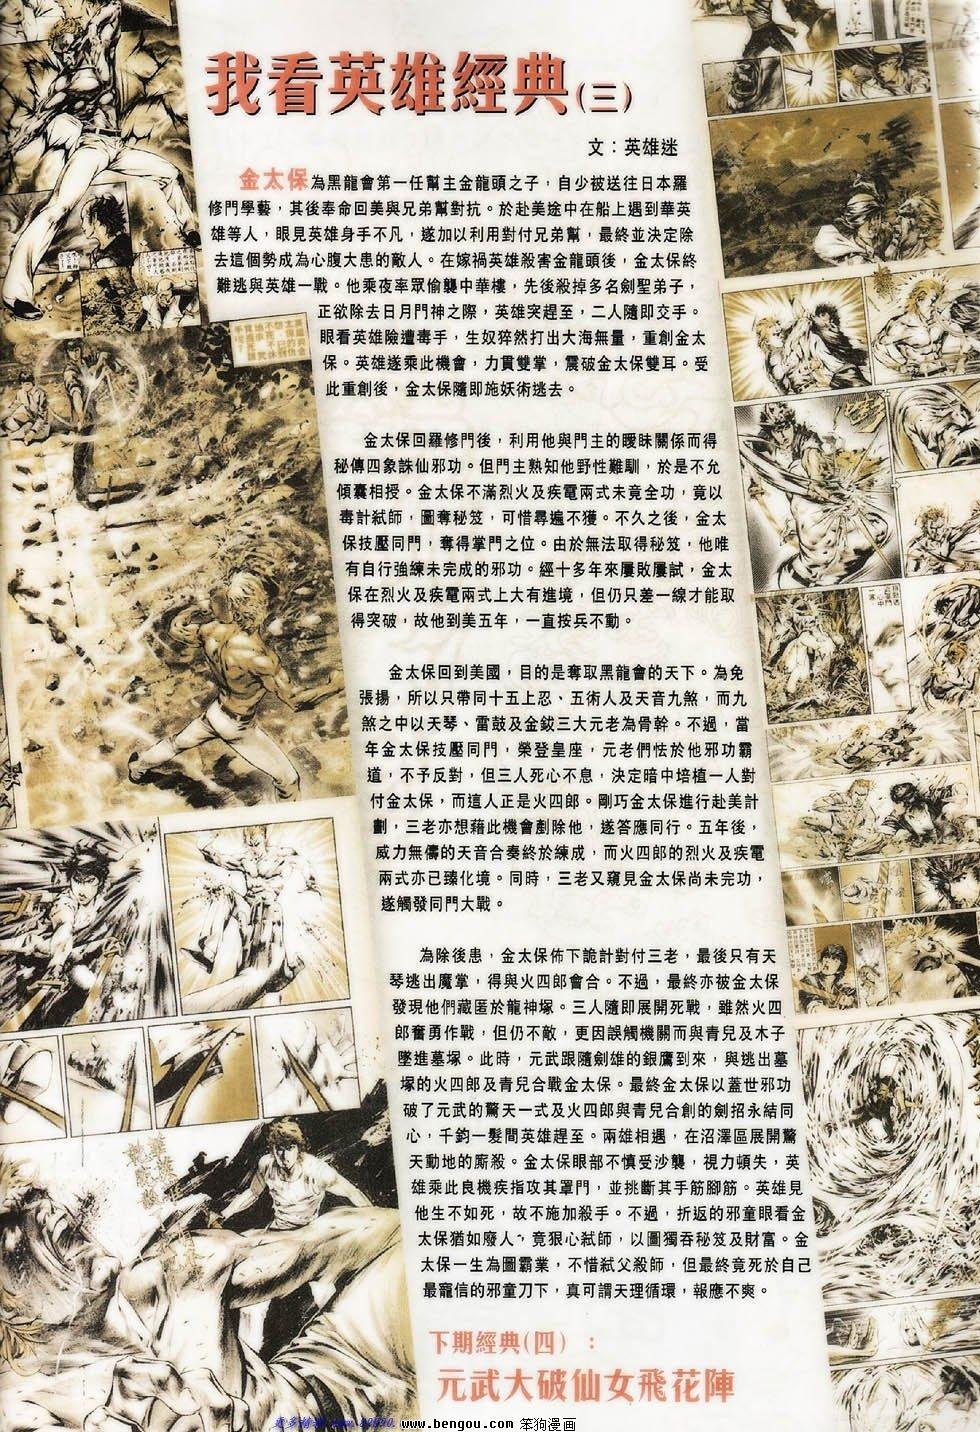 我看英雄經典(三)
文：英雄迷
金太保為黑龍會第一任幫主金龍頭之子，自少被送往日本羅
修門學藝，其後奉命回美與兄弟幫對抗。於赴美途中在船上遇到華英
雄等人，眼見英雄身手不凡，遂加以利用對付兄弟幫，最終並決定除
去這個勢成為心腹大患的敵人。在嫁禍英雄殺害金龍頭後，金太保終
難逃與英雄一戰。他乘夜率眾偷襲中華樓，先後殺掉多名劍聖弟子，
正欲除去日月門神之際，英雄突趕至，二人隨即交手。
眼看英雄險遭毒手，生奴猝然打出大海無量，重創金太
保。英雄遂乘此機會，力貫雙掌，震破金太保雙耳。受
此重創後，金太保隨即施妖術逃去。
金太保回羅修門後，利用他與門主的曖昧關係而得
秘傳四象誅仙邪功。但門主熟知他野性難馴，於是不允
傾囊相授。金太保不滿烈火及疾電兩式未竟全功，竟以
毒計弒師，圖奪秘笈，可惜尋遍不獲。不久之後，金太
保技壓同門，奪得掌門之位。由於無法取得秘笈，他唯
有自行強練未完成的邪功。經十多年來屢敗屢試，金太
保在烈火及疾電兩式上大有進境，但仍只差一線才能取
得突破，故他到美五年，一直按兵不動。
金太保回到美國，目的是奪取黑龍會的天下。為免
張揚，所以只帶同十五上忍、五術人及天音九煞，而九
煞之中以天琴、雷鼓及金鈸三大元老為骨幹。不過，當
年金太保技壓同門，榮登皇座，元老們怯於他邪功霸
道，不予反對，但三人死心不息，決定暗中培植一人對
付金太保，而這人正是火四郎。剛巧金太保進行赴美計
劃，三老亦想藉此機會剷除他，遂答應同行。五年後，
威力無儔的天音合奏終於練成，而火四郎的烈火及疾電
兩式亦已臻化境。同時，三老又窺見金太保尚未完功，
遂觸發同門大戰。
為除後患，金太保佈下詭計對付三老，最後只有天
琴逃出魔掌，得與火四郎會合。不過，最終亦被金太保
發現他們藏匿於龍神塚。三人隨即展開死戰，雖然火四
郎奮勇作戰，但仍不敵，更因誤觸機關而與青兒及木子
墜進墓塚。此時，元武跟隨劍雄的銀鷹到來，與逃出墓
塚的火四郎及青兒合戰金太保。最終金太保以蓋世邪功
破了元武的驚天一式及火四郎與青兒合創的劍招永結同
心，千鈞一髮間英雄趕至。兩雄相遇，在沼澤區展開驚
天動地的廝殺。金太保眼部不慎受沙襲，視力頓失，英
雄乘此良機疾指攻其罩門，並挑斷其手筋腳筋。英雄見
他生不如死，故不施加殺手。不過，折返的邪童眼看金
太保猶如廢人，竟狠心弒師，以圖獨吞秘笈及財富。金
太保一生為圖霸業，不惜弒父殺師，但最終竟死於自己
最寵信的邪童刀下，真可謂天理循環，報應不爽。
下期經典(四)：
元武大破仙女飛花陣
www.bengou.com 笨狗漫画